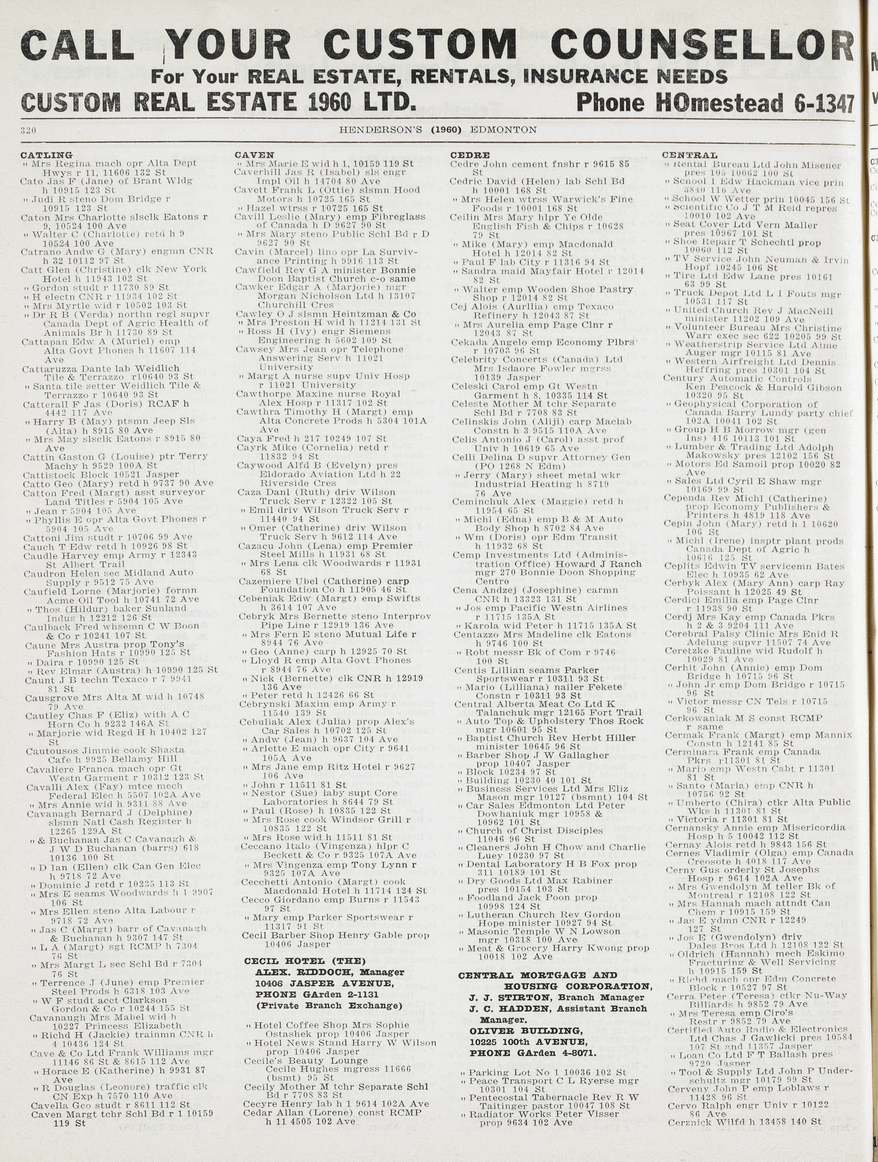 CALL YOUR CUSTOM COUNSELLOR
For Your REAL ESTATE, RENTALS, INSURANCE NEEDS
CUSTOM REAL ESTATE 1960 LTD. Phone HOmestead 6-1347
320 HENDERSON'S (1960) EDMONTON
CATLING
" Mrs Regina mach opr Alta Dept
Hwys r 11, 11606 132 St
Cato Jas F (Jane) of Brant Wldg
h 10915 123 St
" Judi R steno Dom Bridge r
10915 123 St
Caton Mrs Charlotte slsclk Eatons r
9, 10524 100 Ave
" Walter C (Charlotte) retd h 9
10524 100 Ave
Catrano Andw G (Mary) engmn CNR
h 32 10112 97 St
Catt Glen (Christine) clk New York
Hotel h 11943 102 St
" Gordon studt r 11730 89 St
" H electn CNR r 11934 102 St
" Mrs Myrtle wid r 10502 103 St
" Dr R B (Verda) northn regl supvr
Canada Dept of Agric Health of
Animals Br h 11730 89 St
Cattapan Edw A (Muriel) emp
Alta Govt Phones h 11607 114
Ave
Cattaruzza Dante lab Weidlich
Tile & Terrazzo r10640 93 St
" Santa tile setter Weidlich Tile &
Terrazzo r 10640 93 St
Catterall F Jas (Doris) RCAF h
4442 117 Ave
" Harry B (May) ptsmn Jeep Sls
(Alta) h 8915 80 Ave
" Mrs May slsclk Eatons r 8915 80
Ave
Cattin Gaston G (Louise) ptr Terry
Machy h 9529 100A St
Cattistock Block 10521 Jasper
Catto Geo (Mary) retd h 9737 90 Ave
Catton Fred (Margt) asst surveyor
Land Titles r 5904 105 Ave
" Jean r 5904 105 Ave
" Phyllis E opr Alta Govt Phones r
5904 105 Ave
Cattoni Jim studt r 10706 99 Ave
Cauch T Edw retd h 10926 98 St
Caudle Harvey emp Army r 12343
St Albert Trail
Caudron Helen sec Midland Auto
Supply r 9512 75 Ave
Caufield Lorne (Marjorie) formn
Acme Oil Tool h 10741 72 Ave
" Thos (Hildur) baker Sunland
Indus h 12212 126 St
Caulback Fred whsemn C W Boon
& Co r 10241 107 St
Caune Mrs Austra prop Tony's
Fashion Hats r 10990 125 St
" Daira r 10990 125 St
" Rev Elmar (Austra) h 10990 125 St
Caunt J B techn Texaco r 7 9941
81 St
Causgrove Mrs Alta M wid h 10748
79 Ave
Cautley Chas F (Eliz) with A C
Horn Co h 9232 146A St
" Marjorie wid Regd H h 10402 127
St
Cautousos Jimmie cook Shasta
Cafe h 9925 Bellamy Hill
Cavaliere Franca mach opr Gt
Westn Garment r 10312 123 St
Cavalli Alex (Fay) mtce mech
Federal Elec h 5507 102A Ave
" Mrs Annie wid h 9311 88 Ave
Cavanagh Bernard J (Delphine)
slsmn Natl Cash Register h
12265 129A St
" & Buchanan Jas C Cavanagh &
J W D Buchanan (barrs) 618
10136 100 St
" D Ian (Ellen) clk Can Gen Elec
h 9718 72 Ave
" Dominic J retd r 10235 113 St
" Mrs E seams Woodwards h 1 9907
106 St
" Mrs Ellen steno Alta Labour r
9718 72 Ave
" Jas C (Margt) barr of Cavanagh
& Buchanan h 9307 147 St
" L A (Margt) sgt RCMP h 7304
76 St
" Mrs Margt L sec Schl Bd r 7304
76 St
" Terrence J (June) emp Premier
Steel Prods h 6318 103 Ave
" W F studt acct Clarkson
Gordon & Co r 10244 155 St
Cavanaugh Mrs Mabel wid h
10227 Princess Elizabeth
" Richd H (Jackie) trainmn CNR h
4 10436 124 St
Cave & Co Ltd Frank Williams mgr
11146 86 St & 8615 112 Ave
" Horace E (Katherine) h 9931 87
Ave
" R Douglas (Leonore) traffic clk
CN Exp h 7570 110 Ave
Cavella Geo studt r 8611 112 St
Caven Margt tchr Schl Bd r 1 10159
119 St
CAVEN
" Mrs Marie E wid h 1, 10159 119 St
Caverhill Jas R (Isabel) sls engr
Impl Oil h 14704 80 Ave
Cavett Frank L (Ottie) slsmn Hood
Motors h 10725 165 St
" Hazel wtrss r 10725 165 St
Cavill Leslie (Mary) emp Fibreglass
of Canada h D 9627 90 St
" Mrs Mary steno Public Schl Bd r D
9627 90 St
Cavin (Marcel) lino opr La Surviv-
ance Printing h 9916 113 St
Cawfield Rev G A minister Bonnie
Doon Baptist Church c-o same
Cawker Edgar A (Marjorie) mgr
Morgan Nicholson Ltd h 13107
Churchill Cres
Cawley O J slsmn Heintzman & Co
" Mrs Preston H wid h 11214 131 St
" Ross H (Ivy) engr Siemens
Engineering h 5602 109 St
Cawsey Mrs Jean opr Telephone
Answering Serv h 11021
University
" Margt A nurse supv Univ Hosp
r 11021 University
Cawthorpe Maxine nurse Royal
Alex Hosp r 11317 102 St
Cawthra Timothy H (Margt) emp
Alta Concrete Prods h 5304 101A
Ave
Caya Fred h 217 10249 107 St
Cayrk Mike (Cornelia) retd r
11832 94 St
Caywood Alfd B (Evelyn) pres
Eldorado Aviation Ltd h 22
Riverside Cres
Caza Danl (Ruth) driv Wilson
Truck Serv r 12322 105 St
" Emil driv Wilson Truck Serv r
11440 94 St
" Omer (Catherine) driv Wilson
Truck Serv h 9612 114 Ave
Cazacu John (Lena) emp Premier
Steel Mills h 11931 68 St
" Mrs Lena clk Woodwards r 11931
68 St
Cazemiere Ubel (Catherine) carp
Foundation Co h 11905 46 St
Cebeniak Edw (Margt) emp Swifts
h 3614 107 Ave
Cebryk Mrs Bernette steno Interprov
Pipe Line r 12919 136 Ave
" Mrs Fern E steno Mutual Life r
8944 76 Ave
" Geo (Anne) carp h 12925 70 St
" Lloyd R emp Alta Govt Phones
r 8944 76 Ave
" Nick (Bernette) clk CNR h 12919
136 Ave
" Peter retd h 12426 66 St
Cebrynski Maxim emp Army r
11540 139 St
Cebuliak Alex (Julia) prop Alex's
Car Sales h 10702 125 St
" Andw (Jean) h 9637 104 Ave
" Arlette E mach opr City r 9641
105A Ave
" Mrs Jane emp Ritz Hotel r 9627
106 Ave
" John r 11511 81 St
" Nestor (Sue) laby supt Core
Laboratories h 8644 79 St
" Paul (Rose) h 10835 122 St
" Mrs Rose cook Windsor Grill r
10835 122 St
" Mrs Rose wid h 11511 81 St
Ceccano Italo (Vingenza) hlpr C
Beckett & Co r 9325 107A Ave
" Mrs Vingenza emp Tony Lynn r
9325 107A Ave
Cecchetti Antonio (Margt) cook
Macdonald Hotel h 11714 124 St
Cecco Giordano emp Burns r 11543
97 St
" Mary emp Parker Sportswear r
11317 91 St
Cecil Barber Shop Henry Gable prop
10406 Jasper
CECIL HOTEL (THE)
ALEX. RIDDOCH, Manager
10406 JASPER AVENUE,
PHONE GArden 2-1131
(Private Branch Exchange)
" Hotel Coffee Shop Mrs Sophie
Ostashek prop 10406 Jasper
" Hotel News Stand Harry W Wilson
prop 10406 Jasper
Cecile's Beauty Lounge
Cecile Hughes mgress 11666
(bsmt) 95 St
Cecily Mother M tchr Separate Schl
Bd r 7708 83 St
Cecyre Henry lab h 1 9614 102A Ave
Cedar Allan (Lorene) const RCMP
h 11 4505 102 Ave
CEDRE
Cedre John cement fnshr r 9615 85
St
Cedric David (Helen) lab Schl Bd
h 10001 168 St
" Mrs Helen wtrss Warwick's Fine
Foods r 10001 168 St
Ceilin Mrs Mary hlpr Ye Olde
English Fish & Chips r 10628
79 St
" Mike (Mary) emp Macdonald
Hotel h 12014 82 St
" Paul F lab City r 11316 94 St
" Sandra maid Mayfair Hotel r 12014
82 St
" Walter emp Wooden Shoe Pastry
Shop r 12014 82 St
Cej Alois (Aurllia) emp Texaco
Refinery h 12043 87 St
" Mrs Aurelia emp Page Clnr r
12043 87 St
Cekada Angelo emp Economy Plbrs
r 10703 96 St
Celebrity Concerts (Canada) Ltd
Mrs Isdaore Fowler mgrss
10139 Jasper
Celeski Carol emp Gt Westn
Garment h 8, 10335 114 St
Celeste Mother M tchr Separate
Schl Bd r 7708 83 St
Celinskis John (Aliji) carp Maclab
Constn h 3 9515 110A Ave
Celis Antonio J (Carol) asst prof
Univ h 10619 65 Ave
Celli Delina D supvr Attorney Gen
(PO 1268 N Edm)
" Jerry (Mary) sheet metal wkr
Industrial Heating h 8719
76 Ave
Ceminchuk Alex (Maggie) retd h
11954 65 St
" Michl (Edna) emp B & M Auto
Body Shop h 8702 84 Ave
" Wm (Doris) opr Edm Transit
h 11932 68 St
Cemp Investments Ltd (Adminis-
tration Office) Howard J Ranch
mgr 270 Bonnie Doon Shopping
Centre
Cena Andzej (Josephine) carmn
CNR h 13323 131 St
" Jos emp Pacific Westn Airlines
r 11715 135A St
" Karola wid Peter h 11715 135A St
Centazzo Mrs Madeline clk Eatons
h 9746 100 St
" Robt messr Bk of Com r 9746
100 St
Centis Lillian seams Parker
Sportswear r 10311 93 St
" Mario (Lilliana) nailer Fekete
Constn r 10311 93 St
Central Alberta Meat Co Ltd K
Talanchuk mgr 12165 Fort Trail
" Auto Top & Upholstery Thos Rock
mgr 10601 95 St
" Baptist Church Rev Herbt Hiller
minister 10645 96 St
" Barber Shop J W Gallagher
prop 10407 Jasper
" Block 10234 97 St
" Building 10230 40 101 St
" Business Services Ltd Mrs Eliz
Mason mgr 10127 (bsmnt) 104 St
" Car Sales Edmonton Ltd Peter
Dowhaniuk mgr 10958 &
10962 101 St
" Church of Christ Disciples
11046 96 St
" Cleaners John H Chow and Charlie
Luey 10230 97 St
" Dental Laboratory H B Fox prop
311 10189 101 St
" Dry Goods Ltd Max Rabiner
pres 10154 103 St
" Foodland Jack Poon prop
10998 124 St
" Lutheran Church Rev Gordon
Hope minister 10927 94 St
" Masonic Temple W N Lowson
mgr 10318 100 Ave
" Meat & Grocery Harry Kwong prop
10018 102 Ave
CENTRAL MORTGAGE AND
HOUSING CORPORATION,
J. J. STIRTON, Branch Manager
J. C. HADDEN, Assistant Branch
Manager.
OLIVER BUILDING,
10225 100th AVENUE,
PHONE GArden 4-8071.
" Parking Lot No 1 10036 102 St
" Peace Transport C L Ryerse mgr
10301 104 St
" Pentecostal Tabernacle Rev R W
Taitinger pastor 10047 108 St
" Radiator Works Peter Visser
prop 9634 102 Ave
CENTRAL
" Rental Bureau Ltd John Misener
pres 105 10062 100 St
" School I Edw Hackman vice prin
3840 116 Ave
" School W Wetter prin 10045 156 St
" Scientific Co J T M Reid repres
10010 102 Ave
" Seat Cover Ltd Vern Maller
pres 10967 101 St
" Shoe Repair T Schechtl prop
10060 112 St
" TV Service John Neuman & Irvin
Hopf 10245 106 St
" Tire Ltd Edw Lane pres 10161
63 99 St
" Truck Depot Ltd L I Fouts mgr
10531 117 St
" United Church Rev J MacNeill
minister 11202 109 Ave
" Volunteer Bureau Mrs Christine
Warr exec sec 622 10205 99 St
" Weatherstrip Service Ltd Aime
Auger mgr 10115 81 Ave
" Western Airfreight Ltd Dennis
Heffring pres 10301 104 St
Century Automatic Controls
Ken Peacock & Harold Gibson
10320 95 St
" Geophysical Corporation of
Canada Barry Lundy party chief
102A 10041 102 St
" Group H B Morrow mgr (gen
Ins) 416 10113 101 St
" Lumber & Trading Ltd Adolph
Makowsky pres 12102 156 St
" Motors Ed Samoil prop 10020 82
Ave
" Sales Ltd Cyril E Shaw mgr
10169 99 St
Cependa Rev Michl (Catherine)
prop Economy Publishers &
Printers h 4819 118 Ave
Cepin John (Mary) retd h 1 10620
106 St
" Michl (Irene) insptr plant prods
Canada Dept of Agric h
10616 125 St
Ceplits Edwin TV servicemn Bates
Elec h 10935 62 Ave
Cerbyk Alex (Mary Ann) carp Ray
Poissant h 12025 49 St
Cerdici Emilia emp Page Clnr
r 11938 90 St
Cerdj Mrs Kay emp Canada Pkrs
h 2 & 3 9204 111 Ave
Cerebral Palsy Clinic Mrs Enid R
Adelung supvr 11507 74 Ave
Ceretzke Pauline wid Rudolf h
10029 81 Ave
Cerhit John (Annie) emp Dom
Bridge h 10715 96 St
" John Jr emp Dom Bridge r 10715
96 St
" Victor messr CN Tels r 10715
96 St
Cerkowaniak M S const RCMP
r same
Cermak Frank (Margt) emp Mannix
Constn h 12141 85 St
Cerminara Frank emp Canada
Pkrs r11301 81 St
" Mario emp Westn Cabt r 11301
81 St
" Santo (Maria) emp CNR h
10756 92 St
" Umberto (Chira) ctkr Alta Public
Wks h 11301 81 St
" Victoria r 11301 81 St
Cernansky Annie emp Misericordia
Hosp h 5 10042 112 St
Cernay Alois retd h 9843 156 St
Cernes Vladimir (Olga) emp Canada
Creosote h 4018 117 Ave
Cerny Gus orderly St Josephs
Hosp r 9614 102A Ave
" Mrs Gwendolyn M teller Bk of
Montreal r 12108 122 St
" Mrs Hannah mach attndt Can
Chem r 10915 159 St
" Jas E ydmn CNR r 12249
127 St
" Jos E (Gwendolyn) driv
Dales Bros Ltd h 12108 122 St
" Oldrich (Hannah) mech Eskimo
Fracturing & Well Servicing
h 10915 159 St
" Richd mach opr Edm Concrete
Block r 10527 97 St
Cerra Peter (Teresa) ctkr Nu-Way
Billiards h 9852 79 Ave
" Mrs Teresa emp Ciro's
Restr r 9852 79 Ave
Certified Auto Radio & Electronics
Ltd Chas J Gawlicki pres 10584
107 St and 11357 Jasper
" Loan Co Ltd F T Ballash pres
9720 Jasper
" Tool & Supply Ltd John P Under-
schultz mgr 10179 99 St
Cerveny John P emp Loblaws r
11428 96 St
Cervo Ralph engr Univ r 10122
86 Ave
Cerznick Wilfd h 13458 140 St